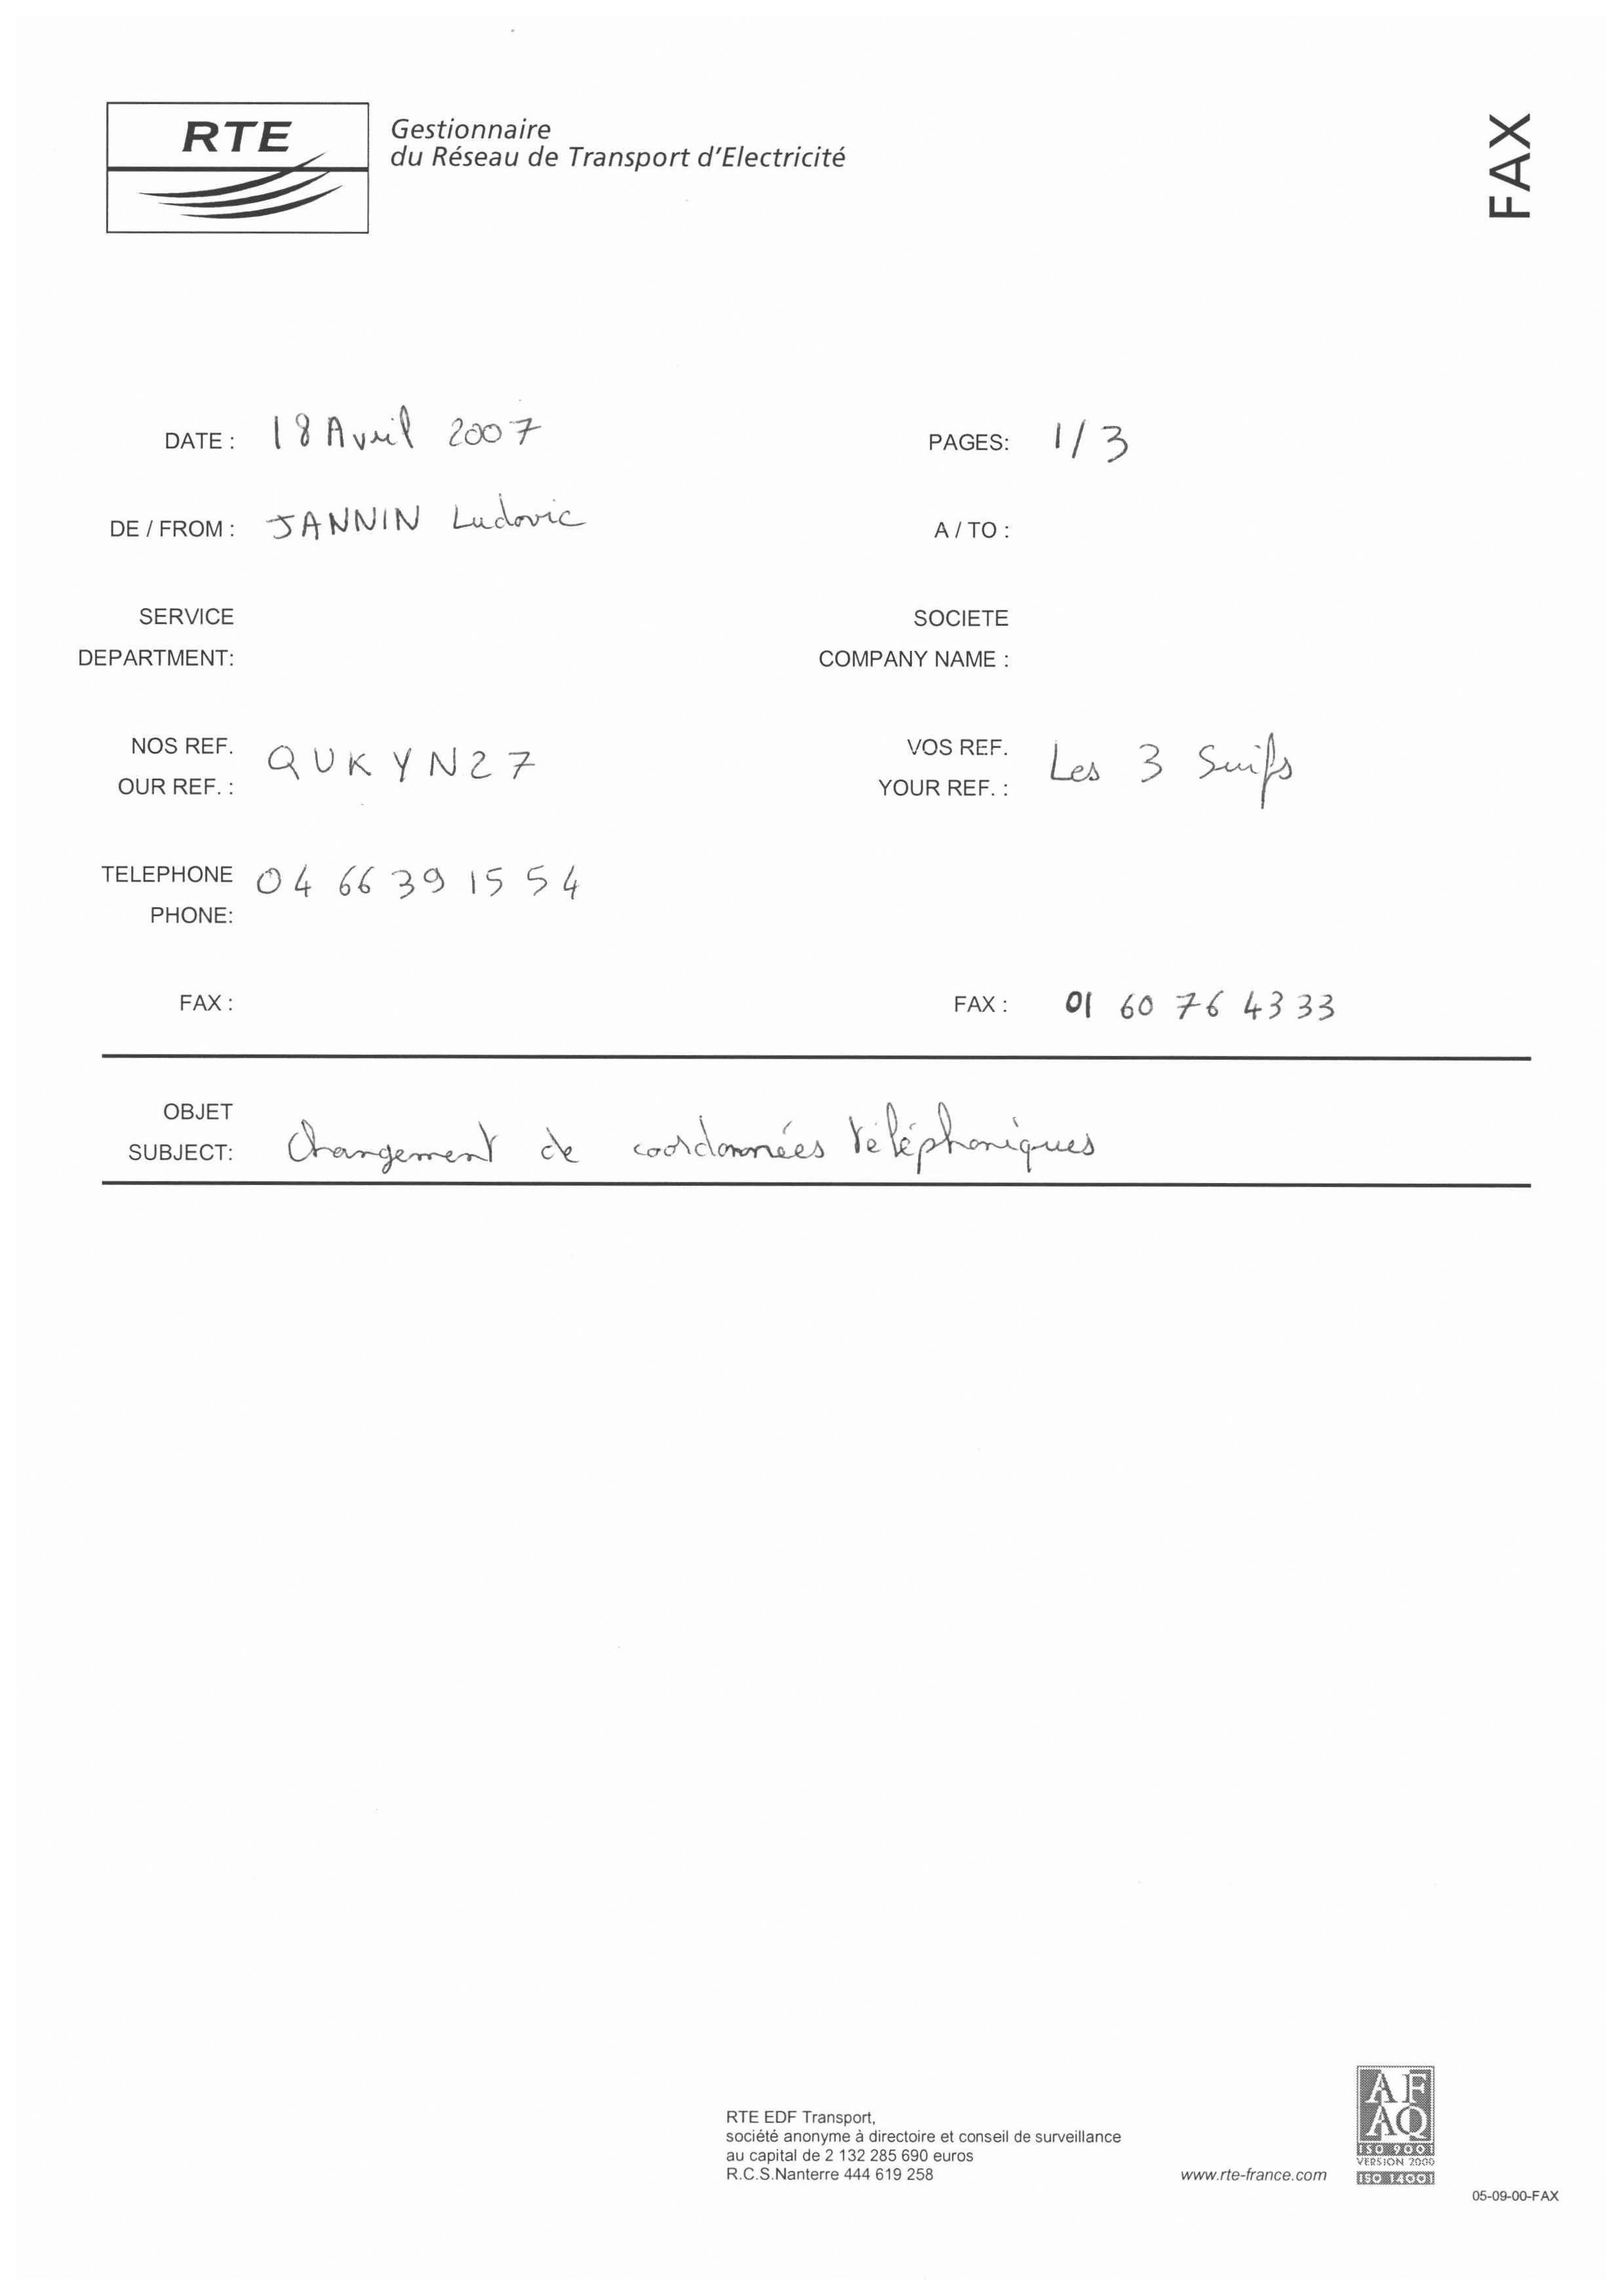 RTE
Gestionnaire
du Réseau de Transport d'Electricité
FAX
DATE : 18 Avril 2007
PAGES: 1/3
DE / FROM : JANNIN Ludovic
A / TO :
SERVICE
DEPARTMENT:
SOCIETE
COMPANY NAME :
NOS REF.
OUR REF. : QUKYN27
VOS REF.
YOUR REF. : Les 3 Suifs
TELEPHONE
PHONE: 04 66 39 15 54
FAX :
FAX : 01 60 76 43 33
OBJET
SUBJECT: Changement de coordonnées téléphoniques
RTE EDF Transport,
société anonyme à directoire et conseil de surveillance
au capital de 2 132 285 690 euros
R.C.S.Nanterre 444 619 258
www.rte-france.com
AF
AQ
ISO 9001
VERSION 2000
ISO 14001
05-09-00-FAX